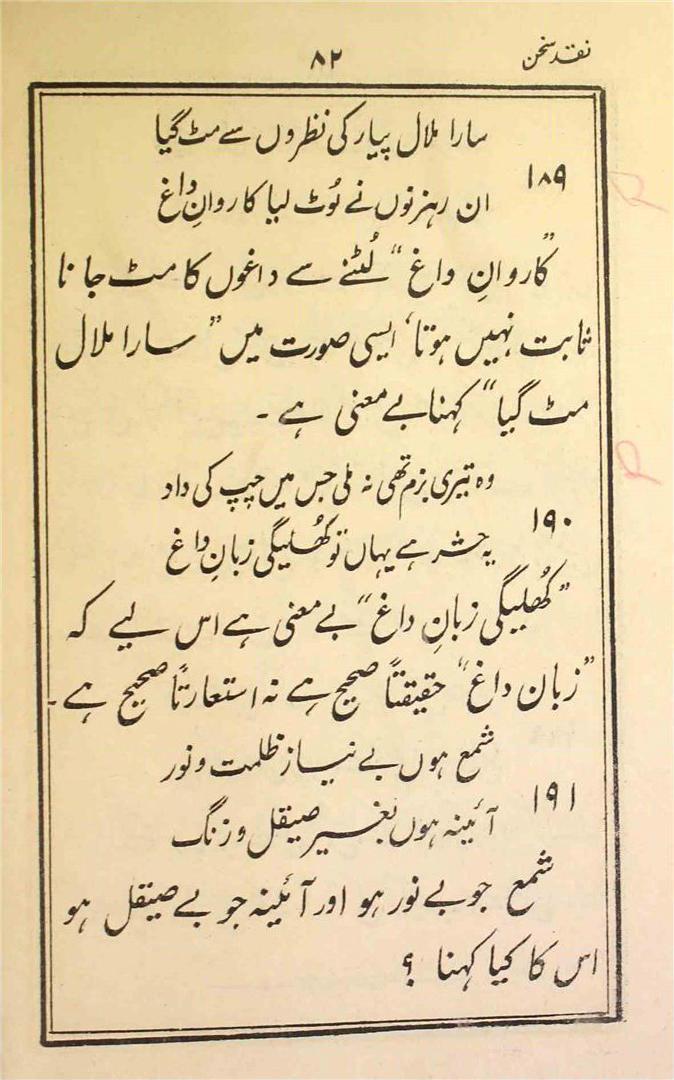 نقد سخن
۸۲
سارا ملال پیار کی نظروں سے مٹ گیا
۱۸۹
ان رہزنوں نے لُوٹ لیا کاروانِ داغ
”کاروانِ داغ“ لُٹنے سے داغوں کا مٹ جانا
ثابت نہیں ہوتا، ایسی صورت میں ”سارا ملال
مٹ گیا“ کہنا بے معنی ہے۔
وہ تیری بزم تھی نہ ملی جس میں چپ کی داد
۱۹۰
یہ حشر ہے یہاں تو کھُلیگی زبانِ داغ
”کھُلیگی زبانِ داغ“ بے معنی ہے اس لیے کہ
”زبان داغ“ حقیقتاً صحیح ہے نہ استعارتاً صحیح ہے۔
شمع ہوں بے نیاز ظلمت و نور
۱۹۱
آئینہ ہوں بغیر صیقل و زنگ
شمع جو بے نور ہو اور آئینہ جو بے صیقل ہو
اس کا کیا کہنا ؟